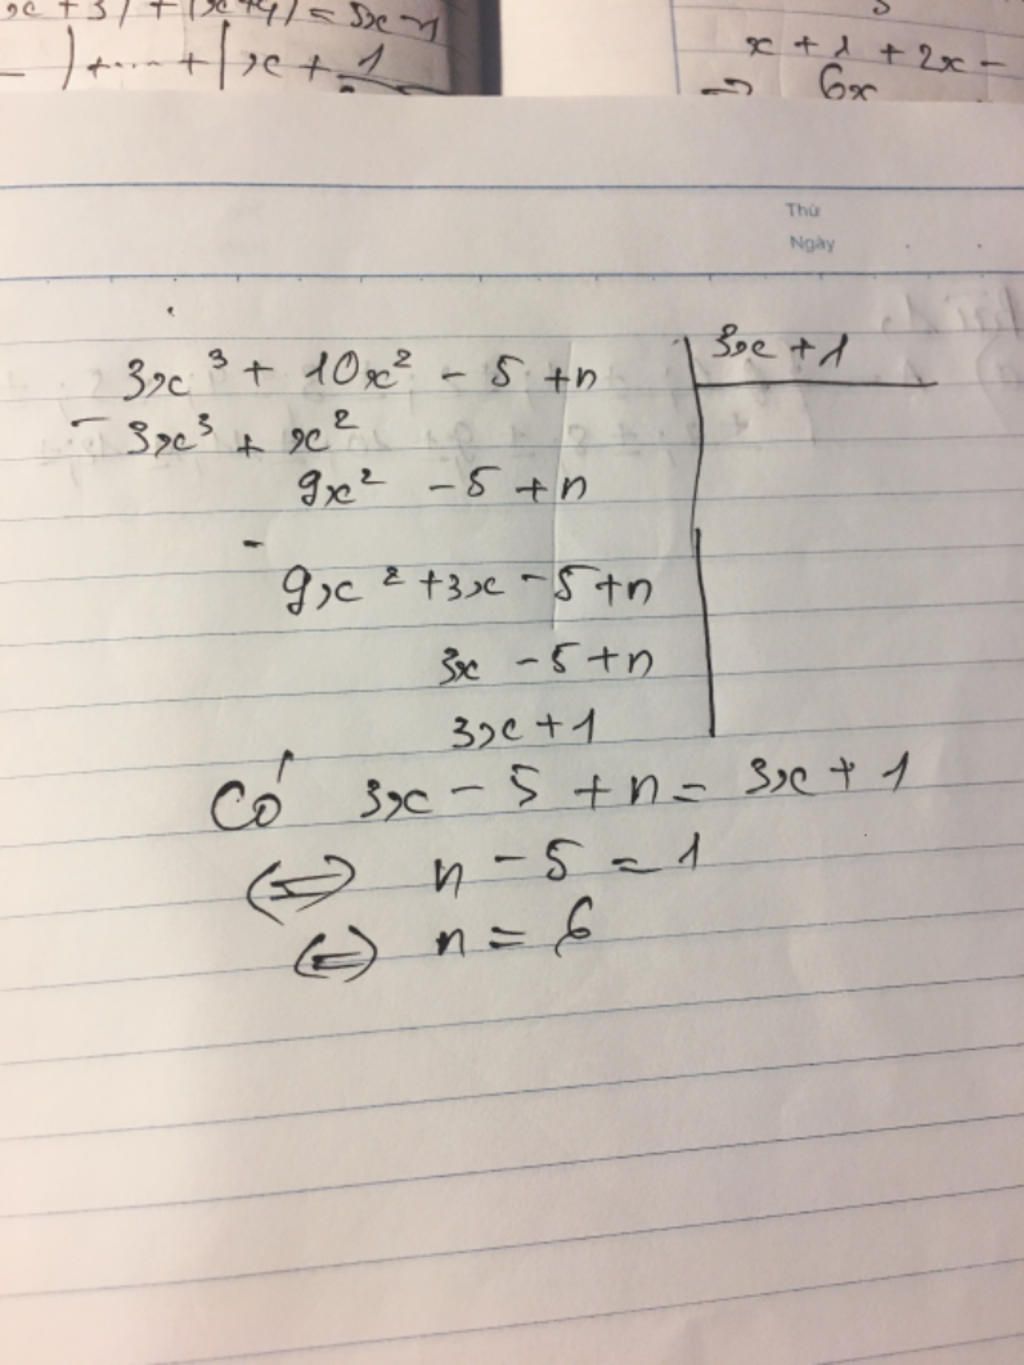 x + 3) + (x+4) = 5x - 1
) + .... + | x + 1
x + 1 + 2x -
=> 6x
Thứ
Ngày
3x³ + 10x² - 5 + n | 3x + 1
- 3x³ + x²
9x² - 5 + n
-
9x² + 3x - 5 + n
3x - 5 + n
3x + 1
Có 3x - 5 + n = 3x + 1
<=> n - 5 = 1
<=> n = 6